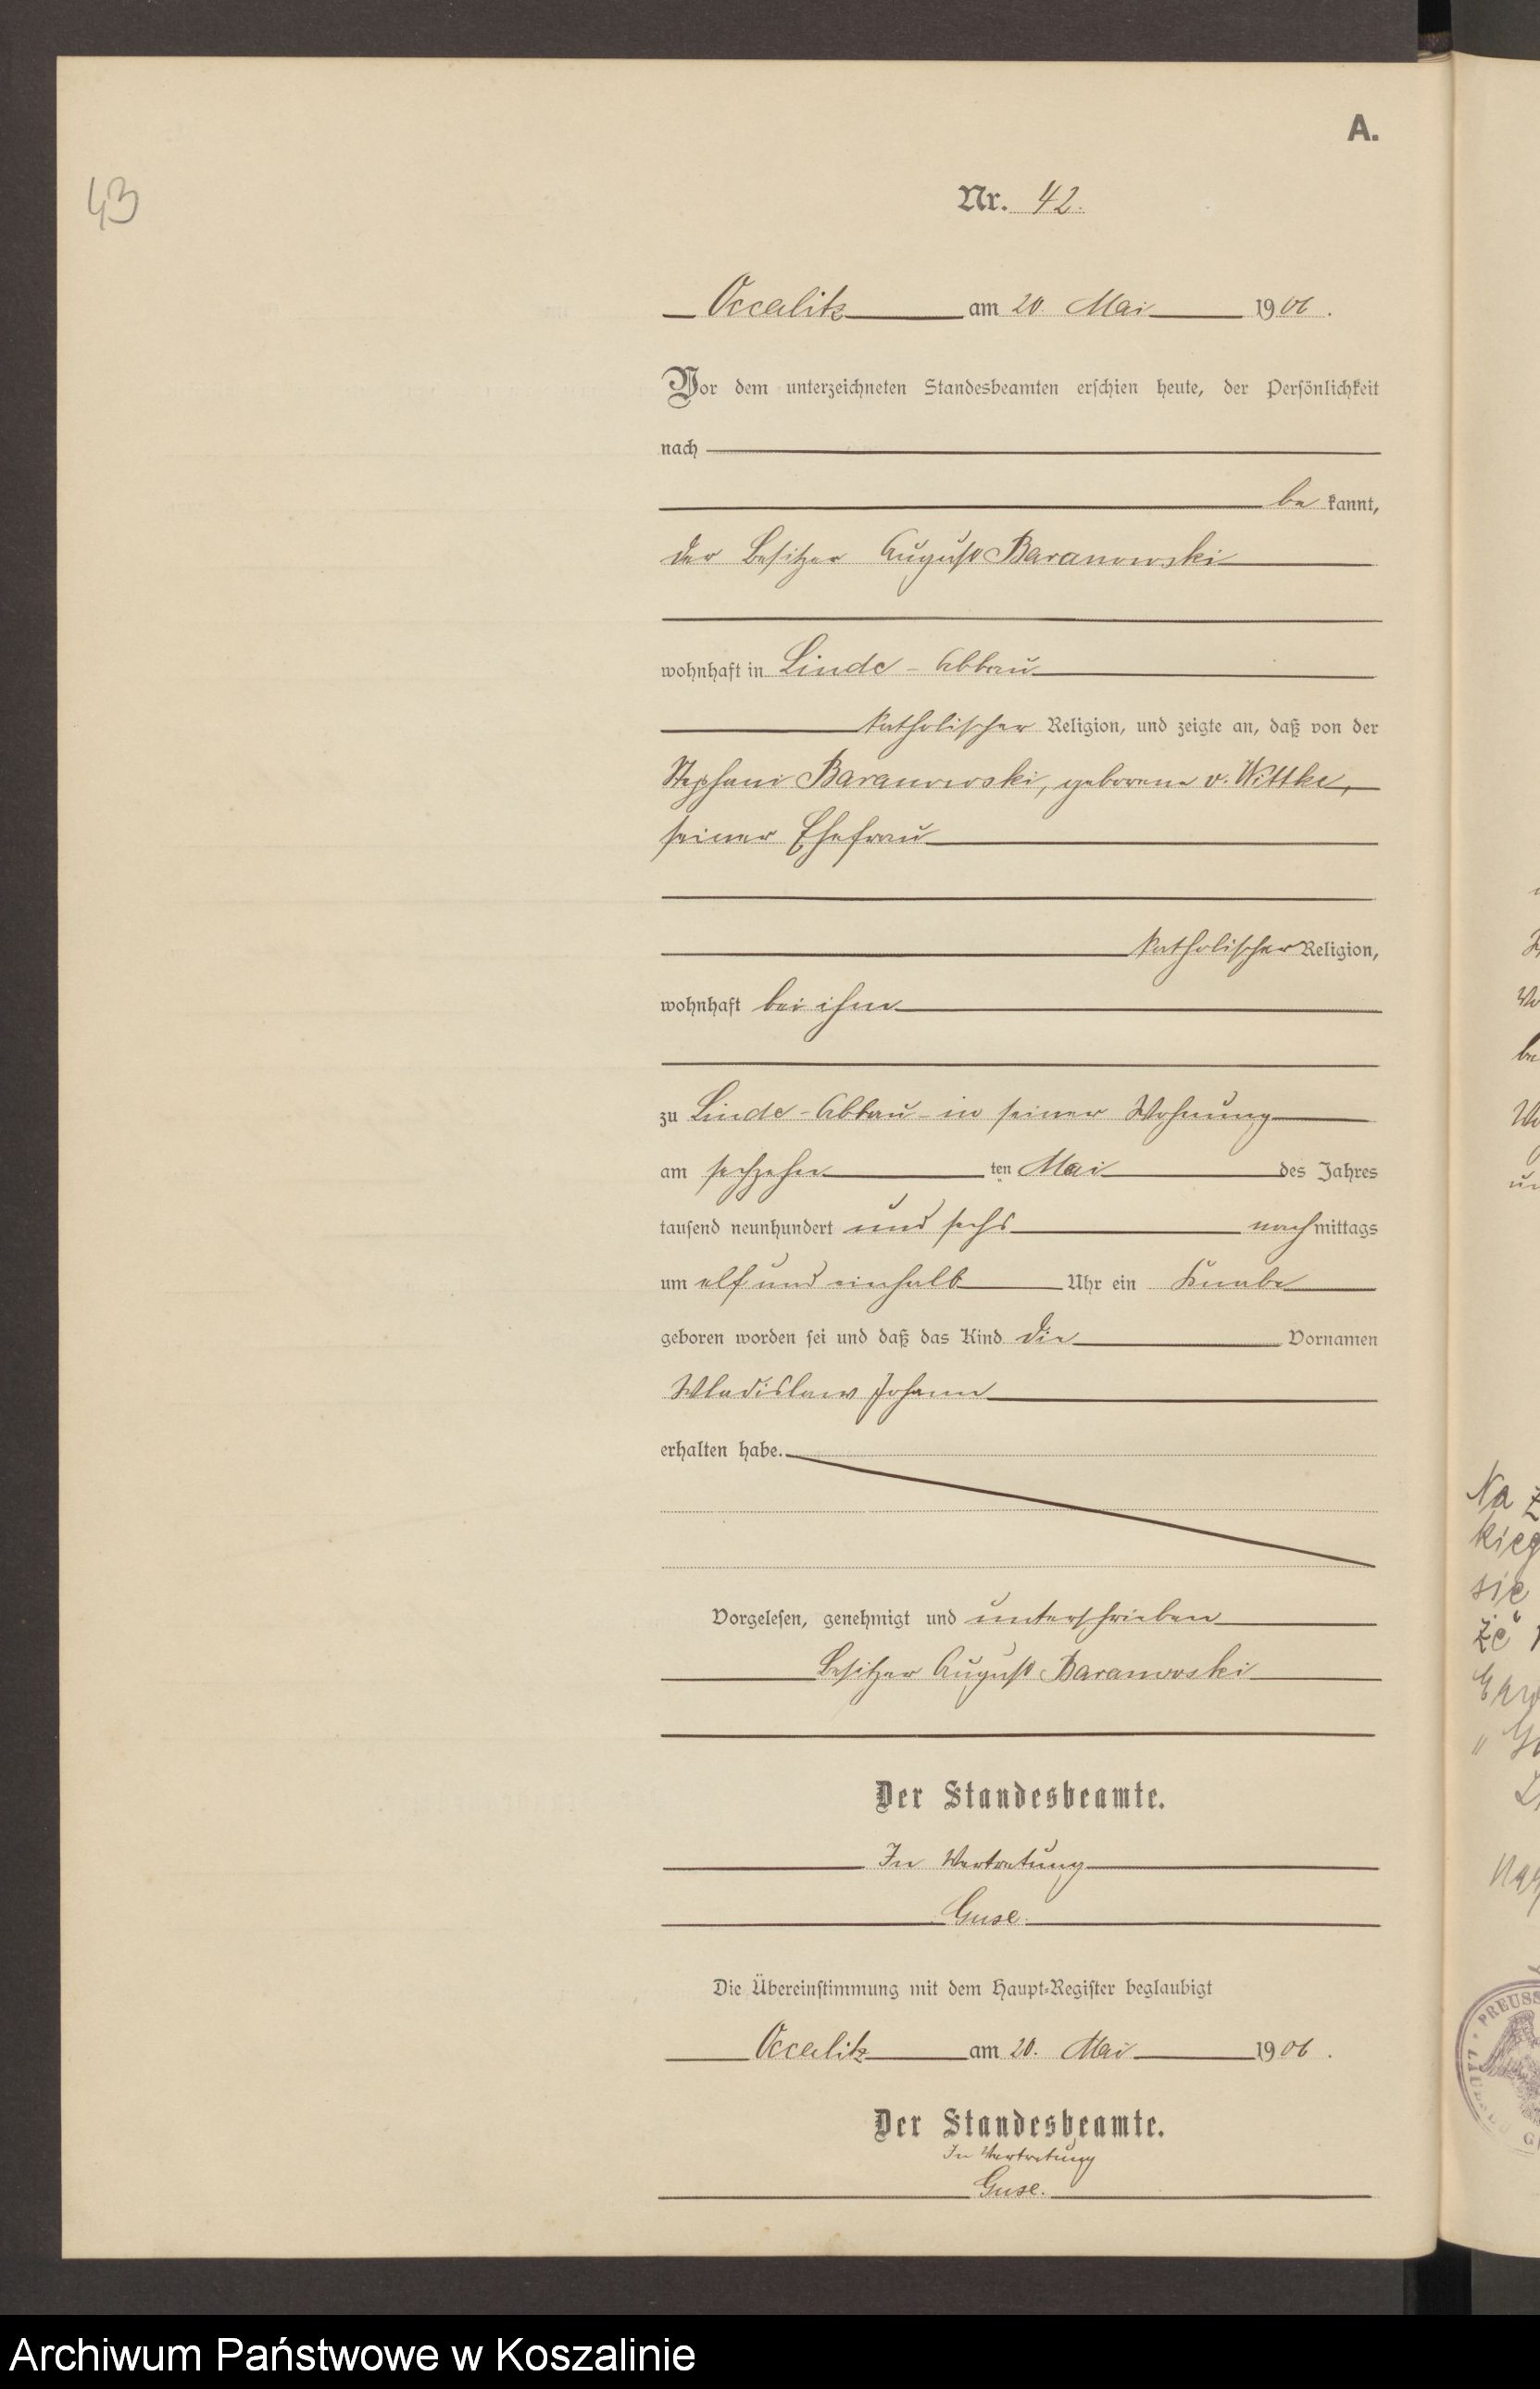 A.
43
Nr. 42.
Occalitz am 20. Mai 1906.
Vor dem unterzeichneten Standesbeamten erschien heute, der Persönlichkeit
nach
be kannt,
der Besitzer August Baranowski
wohnhaft in Linde - Abbau
katholischer Religion, und zeigte an, daß von der
Stephani Baranowski, geborene v. Wittke,
seiner Ehefrau
katholischer Religion,
wohnhaft bei ihm
zu Linde - Abbau - in seiner Wohnung
am sechzehn ten Mai des Jahres
tausend neunhundert und sechs nachmittags
um elf und einhalb Uhr ein Knabe
geboren worden sei und daß das Kind die Vornamen
Wladislaw Johann
erhalten habe.
Vorgelesen, genehmigt und unterschrieben
Besitzer August Baranowski
Der Standesbeamte.
In Vertretung
Guse.
Die Übereinstimmung mit dem Haupt-Register beglaubigt
Occalitz am 20. Mai 1906.
Der Standesbeamte.
In Vertretung
Guse.
Na
sie
że
PREUSS
Archiwum Państwowe w Koszalinie